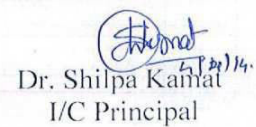 Dr. Shilpa Kamat
I/C Principal